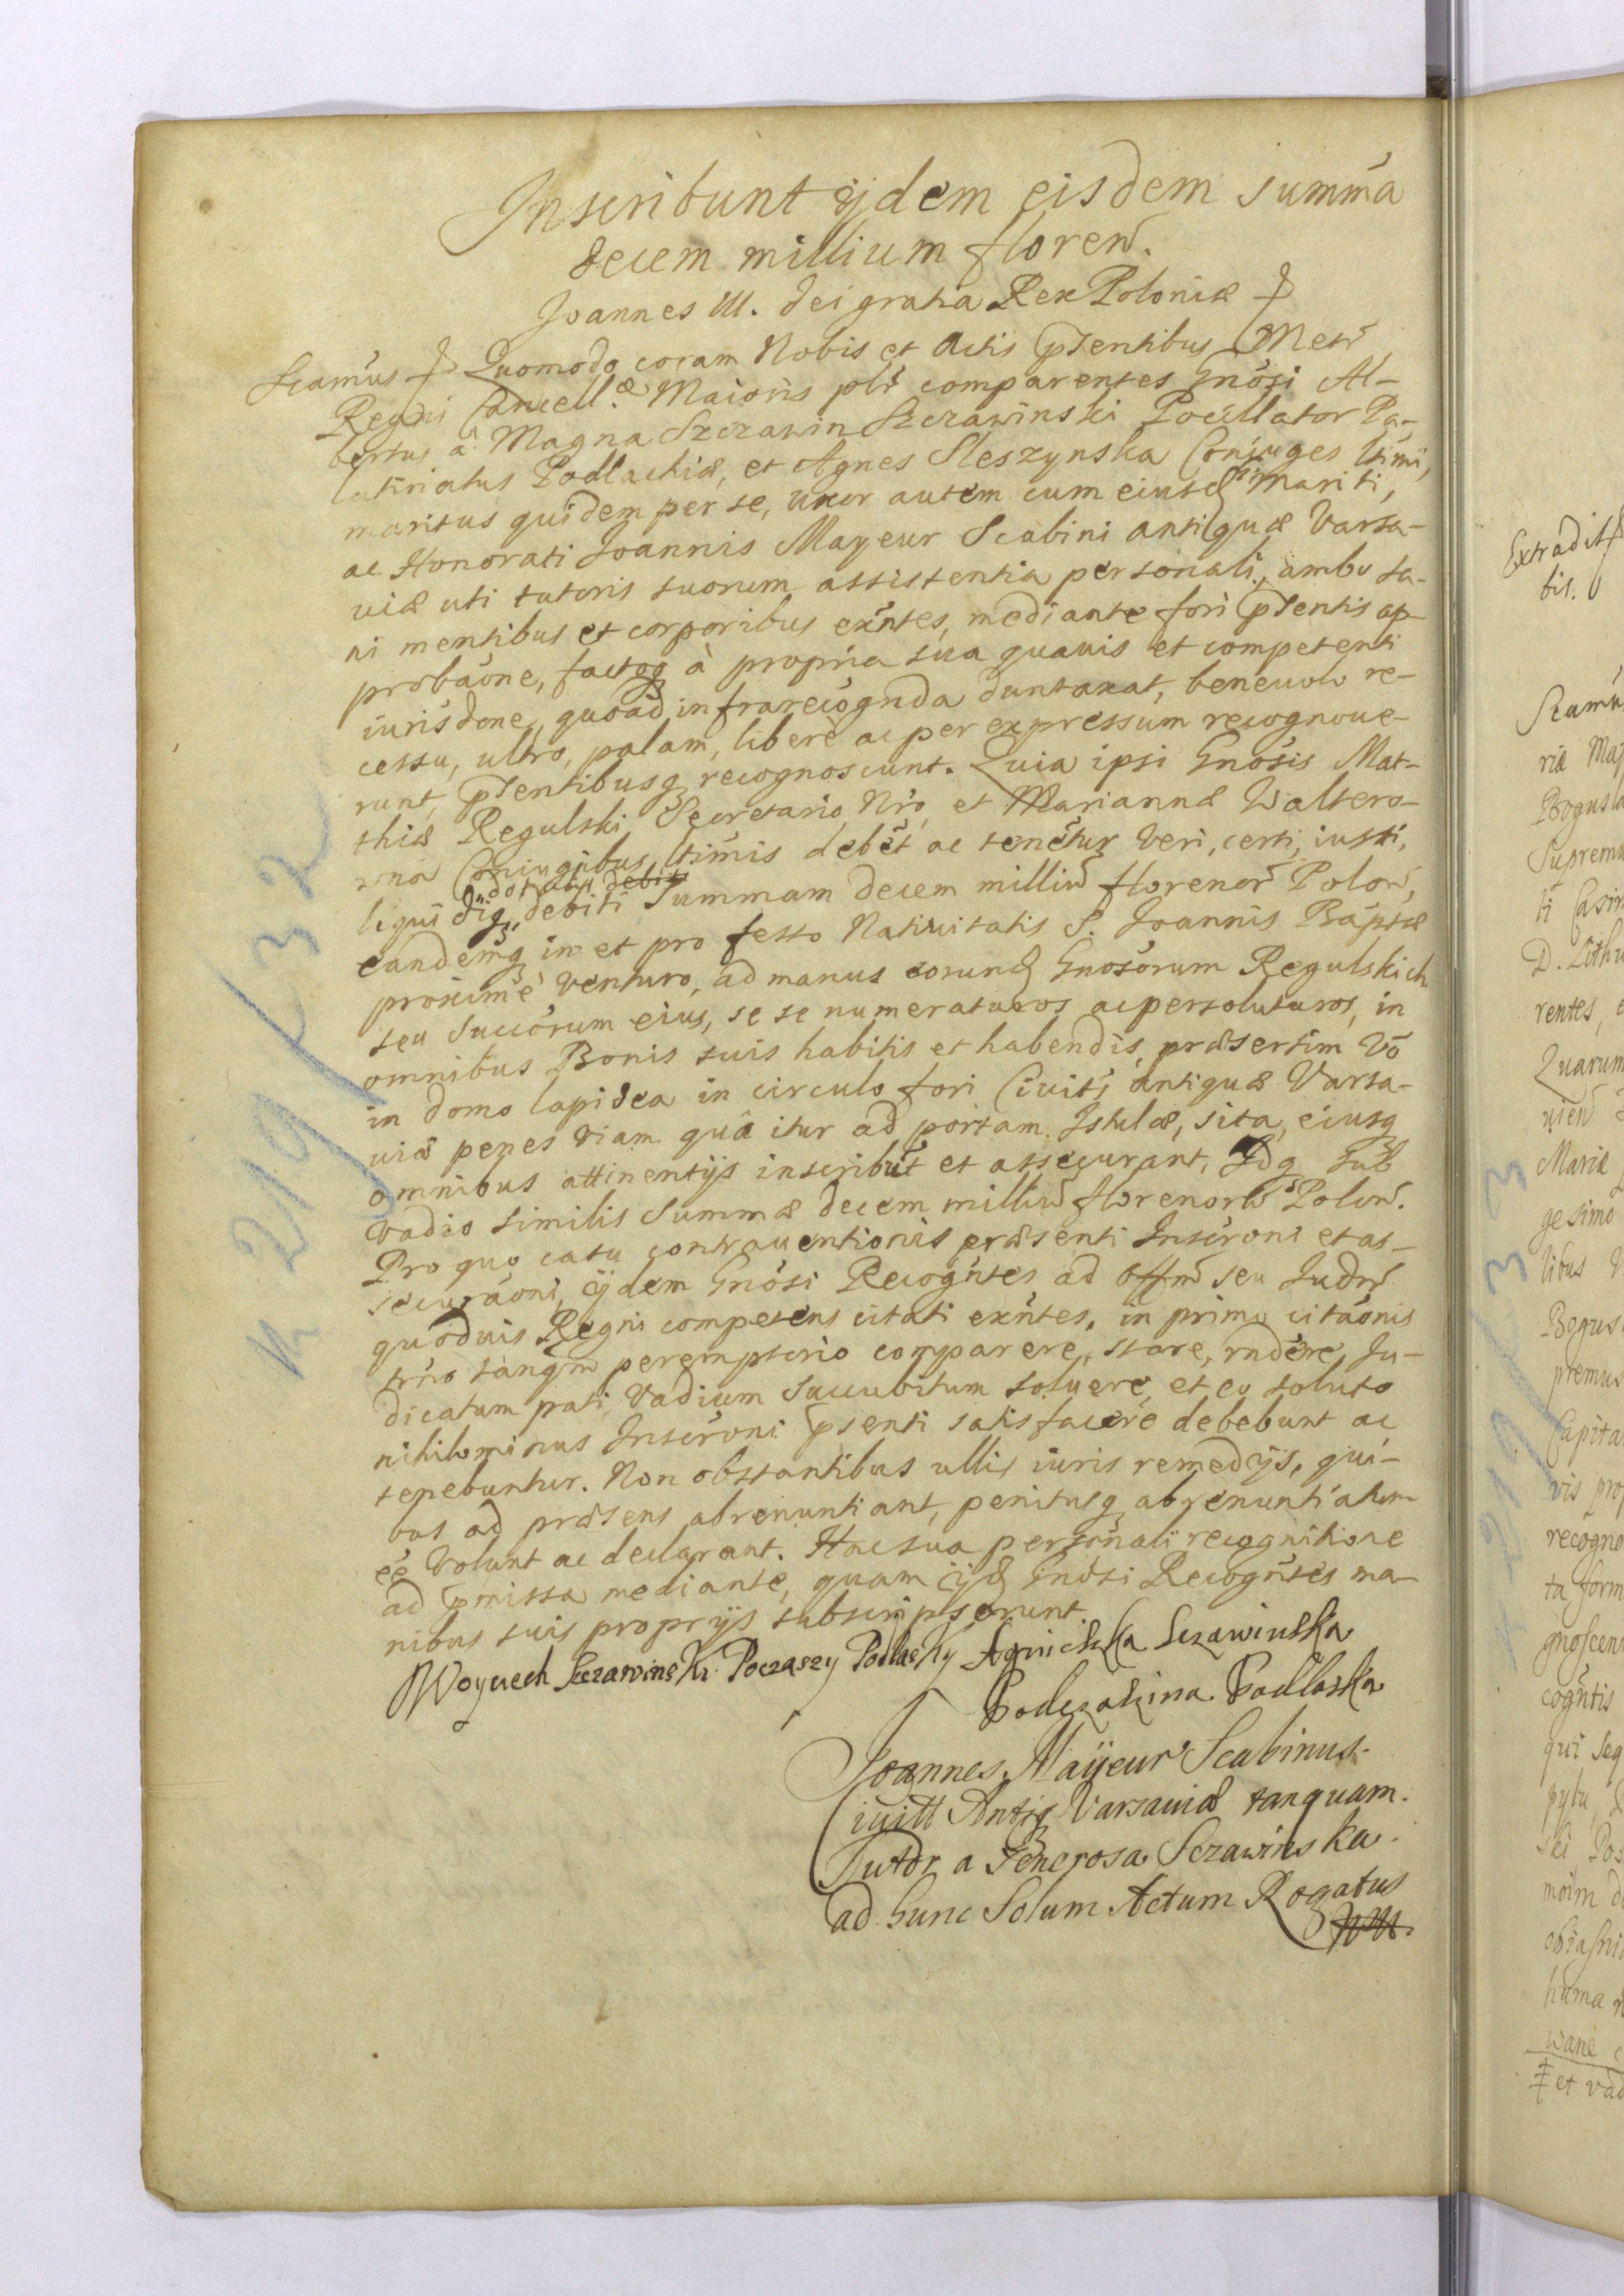 Inscribunt ijdem eisdem summã
decem millium floren.
Joannes III. Dei gratia Rex Poloniæ
Scamus Quomodo coram Nobis et Actis pñtentibus Metr
Regni Cancell. Maioris plr comparentes Gnosi Al-
bertus à Magna Szczawin Szczawinski Pocillator Pa-
latinatus Podlachiæ, et Agnes Sleszynska Coniuges ltimi,
maritus quidem per se, uxor autem cum eiusd mariti,
ac Honorati Joannis Mayeur Scabini antiquæ Varsa-
viæ uti tutoris suorum assistentia personali, ambo sa-
ni mentibus et corporibus exñtes, mediante fori pñtentis ap-
probãone, factoq à propria sua quavis et competenti
iurisdone, quoad infrarecognda duntaxat, benevolo re-
cessu, ultro, palam, libere ac per expressum recognoue-
runt, pñtentibusq recognoscunt. Quia ipsi Gnosis Mat-
thiæ Regulski Secretario Nro, et Mariannæ Waltero-
wna Coniugibus ltimis debẽt ac tenẽtur veri, certi, iusti,
liquidiq, debiti Summam decem milliũ florenor Polon,
eandemq in et pro festo Nativitatis S. Joannis Baptæ
proxime venturo, ad manus eorund Gnosorum Regulskich
seu Succorum eius, se se numeraturos ac persoluturos, in
omnibus Bonis suis habitis et habendis, præsertim vo
in domo lapidea in circulo fori Civits antiquæ Varsa-
viæ penes viam quâ itur ad portam Istulæ, sita, eiusq
omnibus attinentijs inscribũt et assecurant, Idq sub
vadio similis Summæ decem milliũ florenorũ Polon.
Pro quo casu contraventionis præsenti Inscroni et as-
securãoni, ijdem Gnosi Recogntes ad offm seu Judm
quoduis Regni competens citati exñtes, in primo citãonis
trno tanqm peremptorio comparere, stare, rndere, Ju-
dicatum pati, Vadium Succubitum soluere, et eo soluto
nihilominus Inscroni pñsenti satisfacere debebunt ac
tenebuntur. Non obstantibus ullis iuris remedijs, qui-
bus ad præsens abrenuntiant, penitusq abrenuntiatum
ee volunt ac declarant. Hac sua personali recognitione
ad pmissa mediante, quam ijd Gnosi Recogntes ma-
nibus suis proprijs subscripserunt
Woyciech Sczawinski Poczaszy Podlasky Agnieszka Sczawinska
Podczaszina Podlaska
Joannes Maÿeur Scabinus
Ciuitt Antiq Varsauiæ tanquam
Tutor a Generosa Sczawinska
ad hunc Solum Actum Rogatus
K 219/32
Extradit
bis.
Scamu
riæ Maj
Bogusla
Suprem
ti Casim
D. Lithu
rentes,
Quarum
Mariæ
gesimo
libus
Bogus
premus
Capita
vis prop
recogno
ta form
gnoscen
cogntis
qui seq
huma
wane
et vad